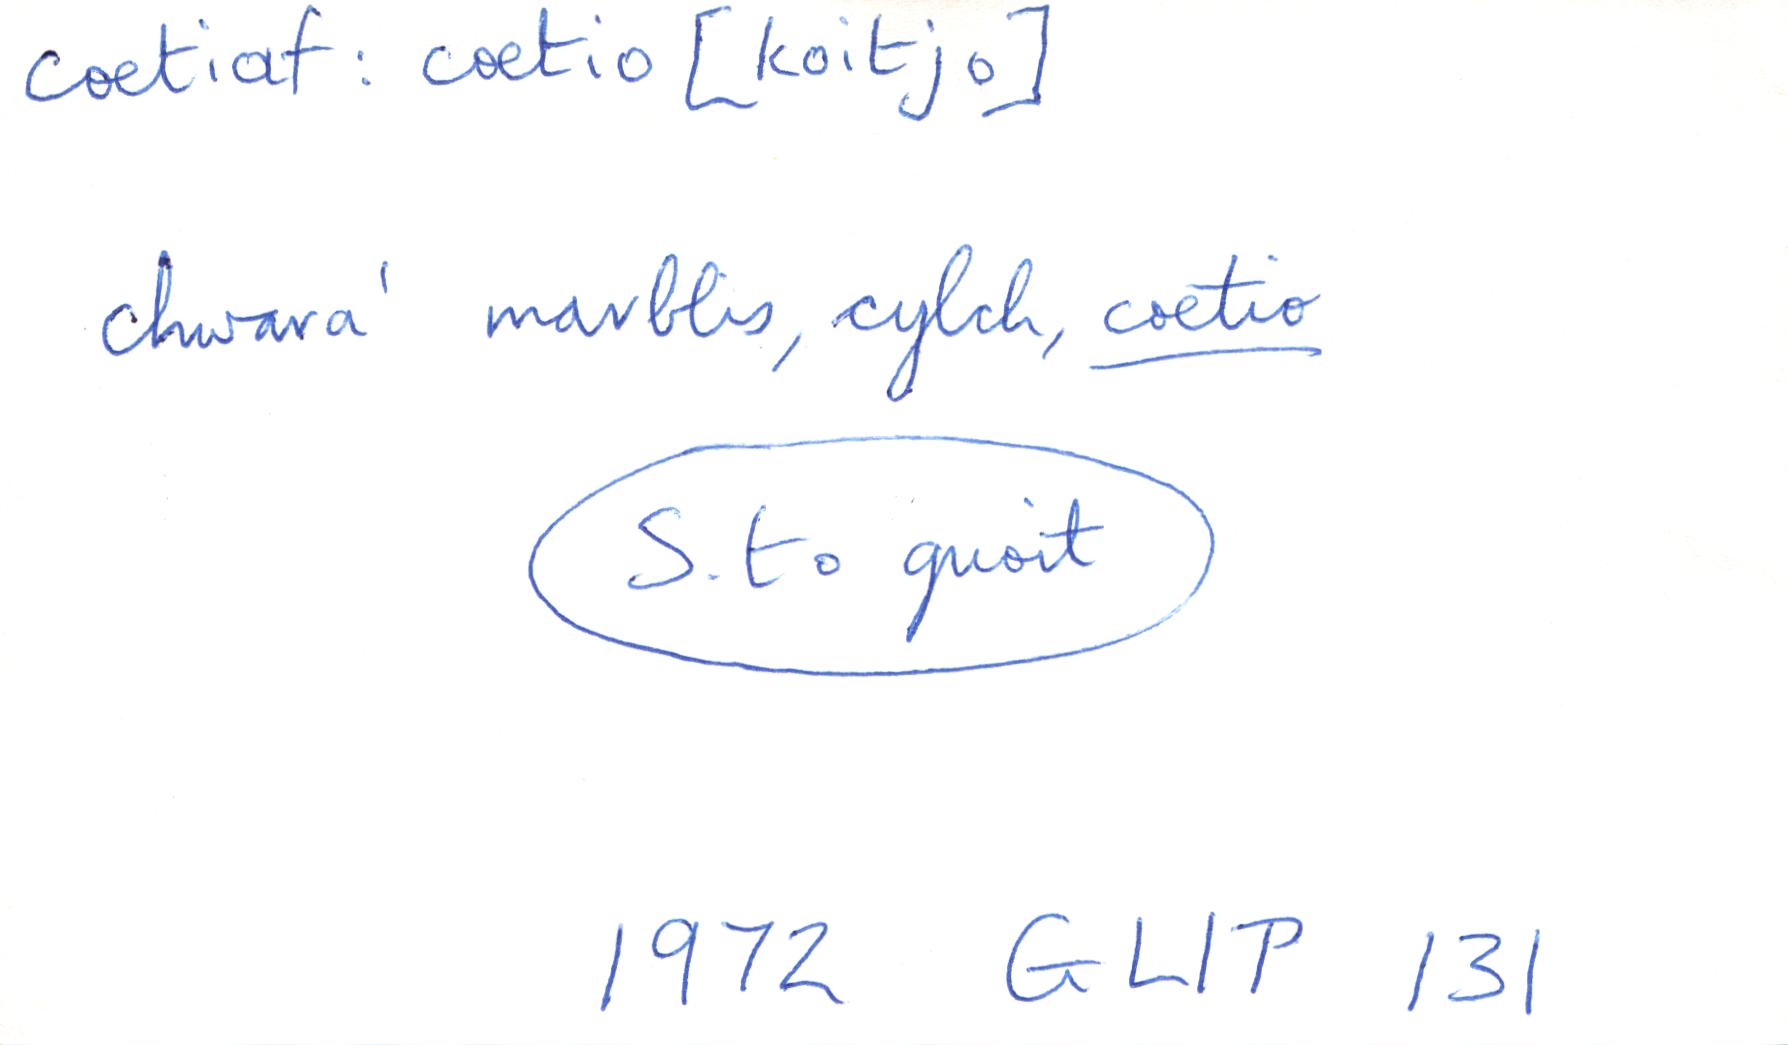 coetiaf: coetio [koitjo]
chwara' marblis, cylch, coetio
S. to quoit
1972 GLlP 131